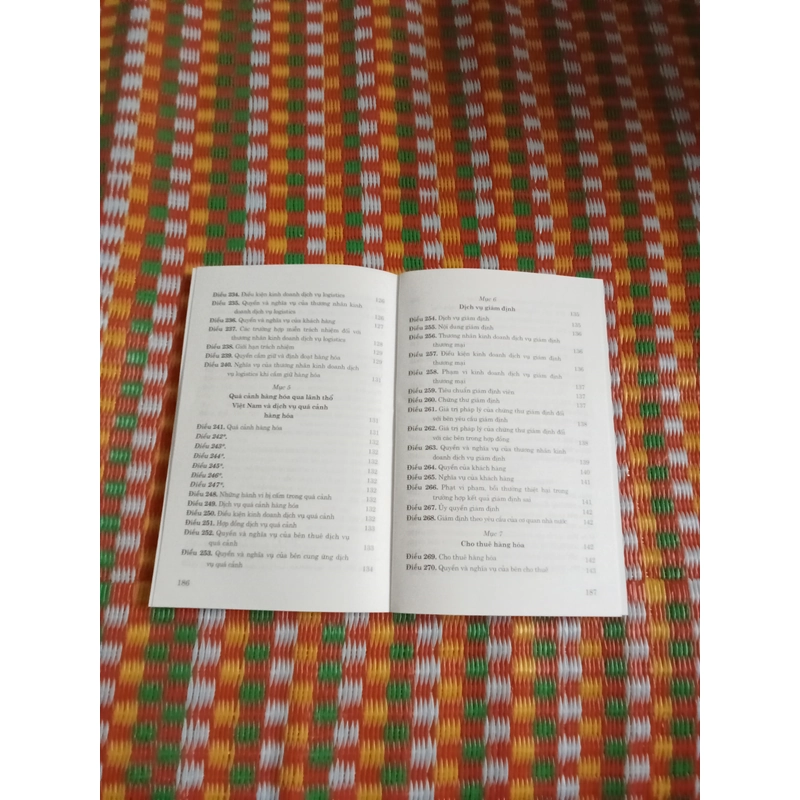 Điều 234. Điều kiện kinh doanh dịch vụ logistics
Điều 235. Quyền và nghĩa vụ của thương nhân kinh
doanh dịch vụ logistics
Điều 236. Quyền và nghĩa vụ của khách hàng
Điều 237. Các trường hợp miễn trách nhiệm đối với
thương nhân kinh doanh dịch vụ logistics
Điều 238. Giới hạn trách nhiệm
Điều 239. Quyền cầm giữ và định đoạt hàng hóa
Điều 240. Nghĩa vụ của thương nhân kinh doanh dịch
vụ logistics khi cầm giữ hàng hóa 131
Mục 5
Quá cảnh hàng hóa qua lãnh thổ
Việt Nam và dịch vụ quá cảnh
hàng hóa 131
Điều 241. Quá cảnh hàng hóa 131
Điều 242*. 132
Điều 243*. 132
Điều 244*. 132
Điều 245*. 132
Điều 246*. 132
Điều 247*. 132
Điều 248. Những hành vi bị cấm trong quá cảnh 132
Điều 249. Dịch vụ quá cảnh hàng hóa 132
Điều 250. Điều kiện kinh doanh dịch vụ quá cảnh 132
Điều 251. Hợp đồng dịch vụ quá cảnh 132
Điều 252. Quyền và nghĩa vụ của bên thuê dịch vụ
quá cảnh 133
Điều 253. Quyền và nghĩa vụ của bên cung ứng dịch
vụ quá cảnh 134
186
Mục 6
Dịch vụ giám định 135
Điều 254. Dịch vụ giám định 135
Điều 255. Nội dung giám định 135
Điều 256. Thương nhân kinh doanh dịch vụ giám định
thương mại 136
Điều 257. Điều kiện kinh doanh dịch vụ giám định
thương mại 136
Điều 258. Phạm vi kinh doanh dịch vụ giám định
thương mại 136
Điều 259. Tiêu chuẩn giám định viên 137
Điều 260. Chứng thư giám định 137
Điều 261. Giá trị pháp lý của chứng thư giám định đối
với bên yêu cầu giám định 138
Điều 262. Giá trị pháp lý của chứng thư giám định đối
với các bên trong hợp đồng 138
Điều 263. Quyền và nghĩa vụ của thương nhân kinh
doanh dịch vụ giám định 139
Điều 264. Quyền của khách hàng 140
Điều 265. Nghĩa vụ của khách hàng 141
Điều 266. Phạt vi phạm, bồi thường thiệt hại trong
trường hợp kết quả giám định sai 141
Điều 267. Ủy quyền giám định 141
Điều 268. Giám định theo yêu cầu của cơ quan nhà nước 142
Mục 7
Cho thuê hàng hóa 142
Điều 269. Cho thuê hàng hóa 142
Điều 270. Quyền và nghĩa vụ của bên cho thuê 142
187